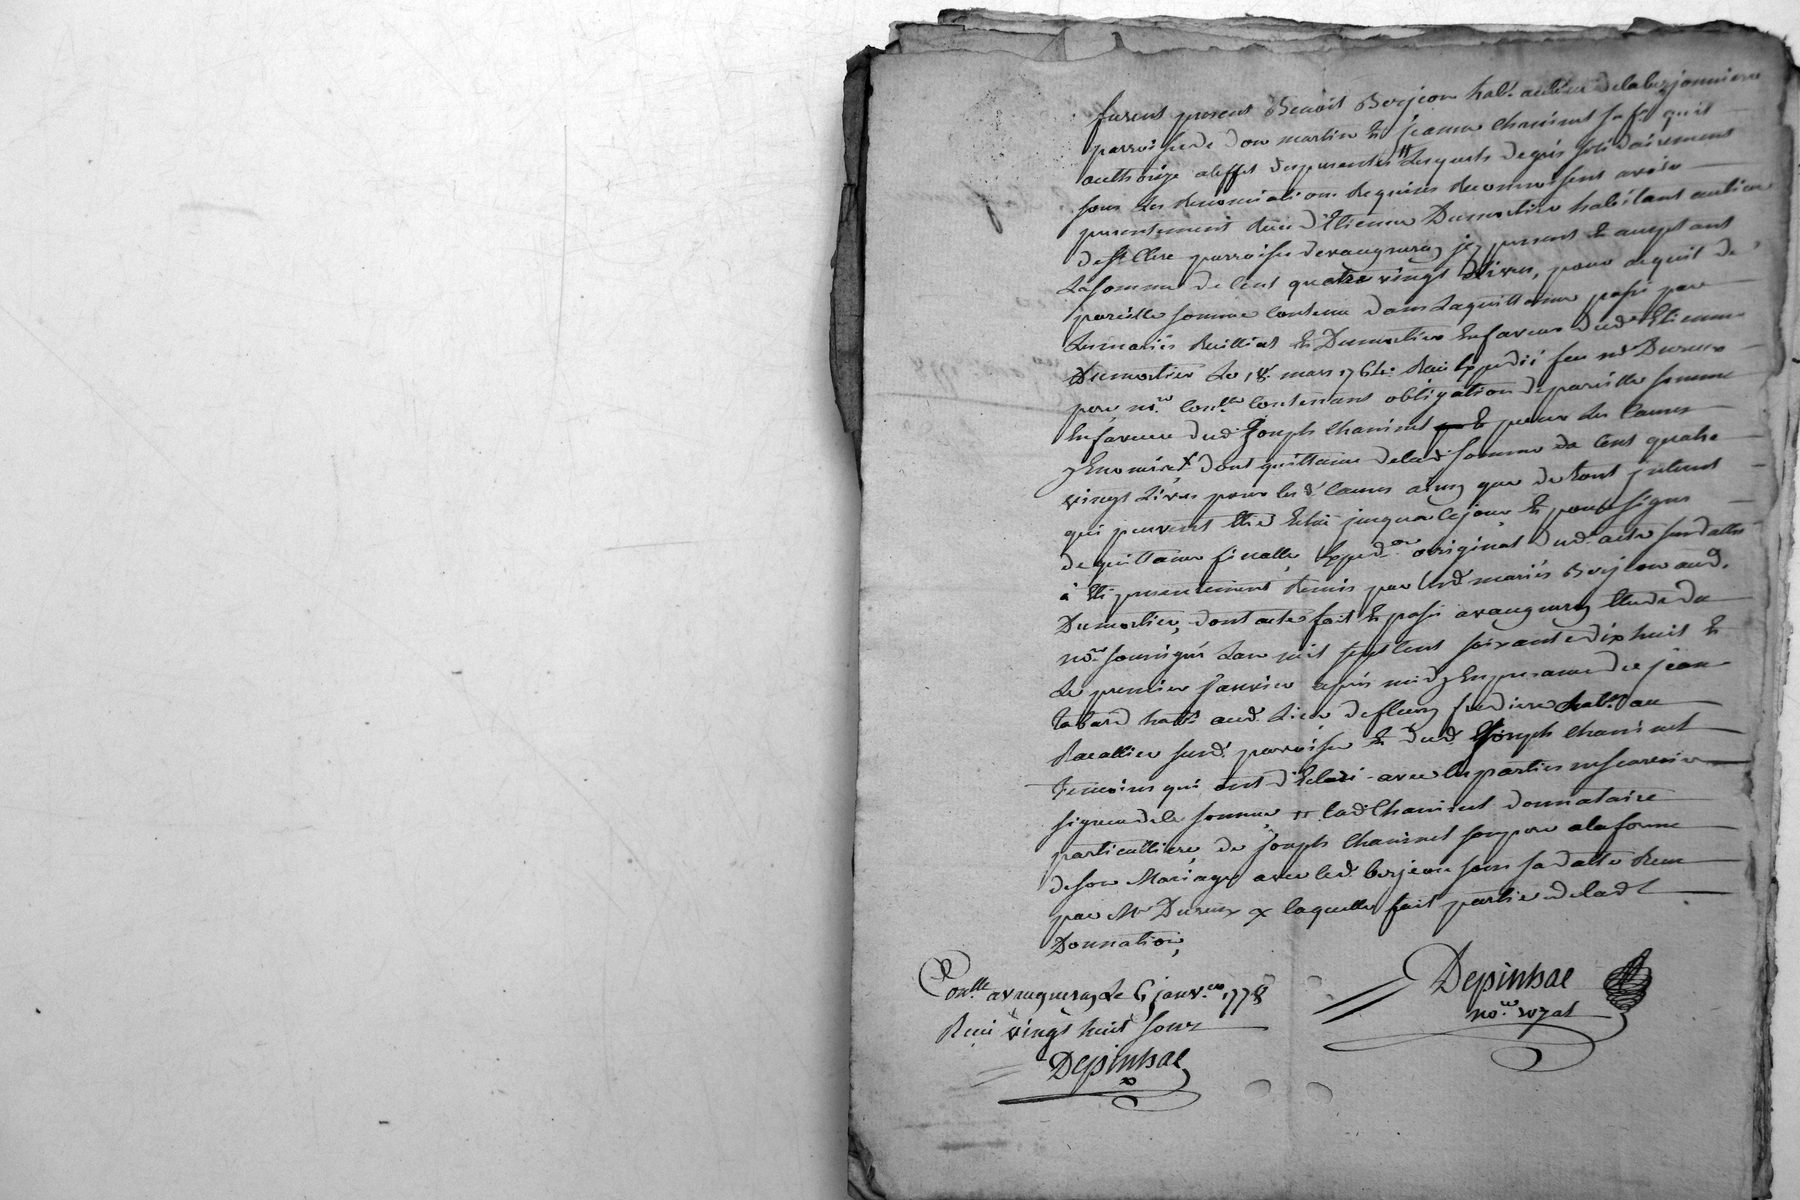 furent present Benoit Berjeon hab.t au lieu delaberjonniere
parroisse de dom martin Et jeanne Chaninet sa fe quil
authorise aleffet des presentes lesquels de gré solidairement
sous les Renonciations Requises Reconnoissent avoir
presentement Recu d'Etienne Dumortier habitant au lieu
de st Clere parroisse devaugneray jcy present Et aceptant
La somme de Cent quatre vingt Livres, pour acquit de
pareille somme Contenue dans La quittance passé par
Les mariés Et Dumortier En faveur dud. Etienne
Dumortier Le 18. mars 1764. Recu Expedié feu me Dureux
pere no.re Contenant obligation de pareille somme
En faveur dud. Joseph Chaninet pour Les Causes
y Enoncées dont quittance de lad. somme de Cent quatre
vingt Livres pour lesd. Causes ainsy que de tout jnterest
qui peuvent Etre jusqua Ce jour Et pour signe
de quittance finalle, Exped.on original dud. acte susdatté
à Eté presentement Remis par Lesd mariés Berjeon aud.
Dumortier, dont acte fait Et passé avaugneray Etude du
no.re soussigné Lan mil sept Cent soixante dix huit Et
Le premier janvier après midy En presance de jean
hab.t aud. Lieu de fleury hab.t au
susd. parroisse Et dud. Joseph Chaninet
Temoins qui ont déclaré avec les parties ne scavoir
signer de ce sommé lad. Chaninet donnataire
particulliere de Joseph Chaninet son pere ala forme
de son Mariage avec led. berjeon sous sa datte Recu
par Me Dureux laquelle fait partie de lad.
Donnation,
Con.lle avaugneray Le 6 janv.er 1778
Recu vingt huit sous
Depinhac
Depinhac
no.re royal